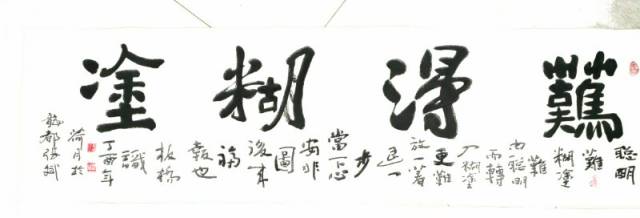 難得糊塗
聰明
難
糊塗
難
由聰明
而轉
入糊塗
更難
放一着
退一
步
當下心
安非
圖
後来
福
報也
板橋
識
丁酉年
荷月於
都張斌